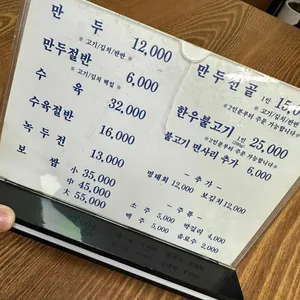 만 두 12,000
※ 고기/김치/반반 ※
만두절반 6,000
※ 고기/김치 택일 ※
수 육 32,000
수육절반 16,000
녹두전 13,000
보 쌈 소 35,000
중 45,000
대 55,000
만두전골 1인 15,0
※2인분부터 주문 가능합니다※
한우불고기 1인 25,000
(200g)
※2인분부터 주문 가능합니다※
불고기 면사리 추가 6,000
- 추 가 -
명태회 12,000 보김치 12,000
- 주 류 -
소 주 5,000 막걸리 4,000
맥 주 5,000 음료수 2,000